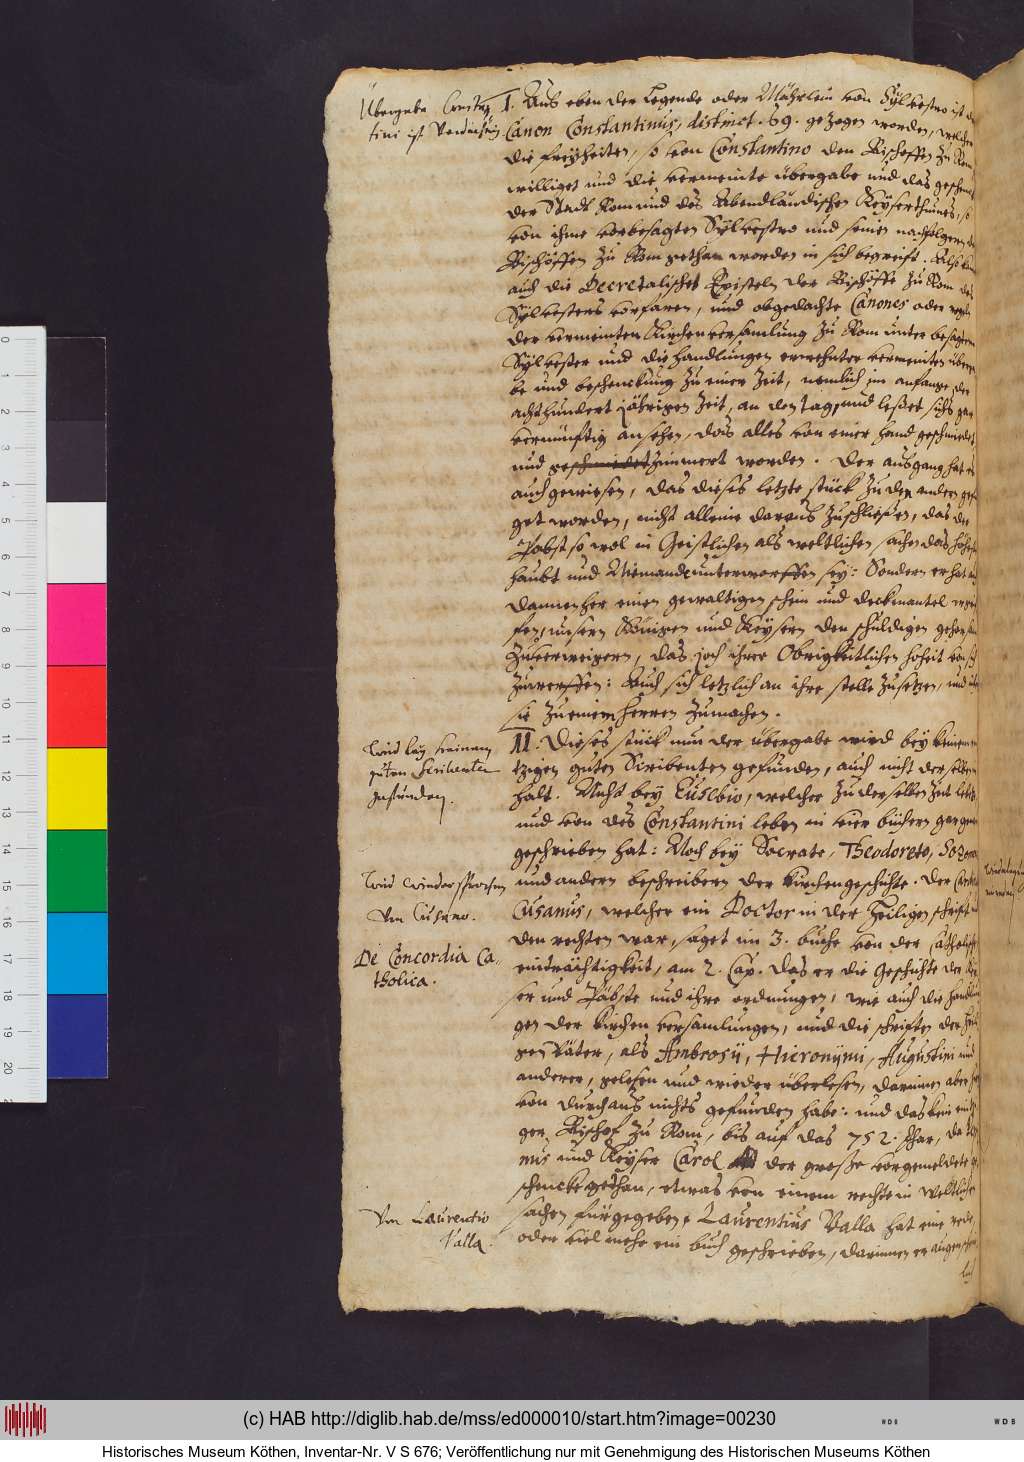 Übergabe Constan
tini ist Verdächtig
I. Aus eben der Legende oder Mährlein von Sylvestro ist d
Canon Constantinus, distinct. 69. gezogen worden, welcher
die freyheiten, so von Constantino den Bischoffen zu Rom
williget und die vermeinte übergabe und das geschenck
der Stadt Rom und des Abendländischen Keyserthumes, so
von ihme vorbesagten Sylvestro und seinen nachfolgern
Bischöffen zu Rom gethan worden in sich begreift. Also
auch die Decretalischen Episteln der Bischöffe zu Rom des
Sylvesters vorfaren, und obgedachte Canones oder regeln
der vermeinten Kirchen versamlung zu Rom unter besagtem
Sylvester und die handlungen erwehnter vermeinten überga
be und beschenckung zu einer Zeit, nemlich im anfange der
achthundert jährigen Zeit, an den tag, und lesset sichs gar
vernünftig ansehen, das alles von einer hand geschmiedet
und geschmiedet zimmert worden. Der ausgang hat es
auch gewiesen, das dieses letzte stück zu den andern gefü
get worden, nicht alleine daraus zuschliessen, das der
Pabst so wol in Geistlichen als weltlichen sachen das höheste
haubt und Niemande unterworffen sey: Sondern er hat
dannenher einen gewaltigen schein und deckmantel
fen, unsern Königen und Keysern den schuldigen gehorsam
zuverweigern, das joch ihrer Obrigkeitlichen hoheit von sich
zuwerffen: Auch sich letzlich an ihre stelle zusetzen, und über
sie zu einem Herren zumachen.
Wird bey keinem
guten Scribenten
gefunden.
II. Dieses stück nun der übergabe wird bey keinem
tzigen guten Scribenten gefunden, auch nicht derselben
halt. Nicht bey Eusebio, welcher zu derselben Zeit lebte
und von des Constantini leben in vier büchern gar genau
geschrieben hat: Noch bey Socrate, Theodoreto, Sozomeno
Wird wiedersprochen
von Cusano.
und andern beschreibern der Kirchengeschichte. Der Cardinal
Cusanus, welcher ein Doctor in der Heiligen schrift
den rechten war, saget im 3. buche von der Catholischen
De Concordia Ca-
tholica.
einträchtigkeit, am 2. Cap. das er die Geschichte der Key
ser und Päbste und ihre ordnungen, wie auch die handlun
gen der Kirchen versamlungen, und die schriften der Heili
gen Väter, als Ambrosij, Hieronymi, Augustini und
anderer, gelesen und wieder überlesen, darinnen aber hier
von durchaus nichts gefunden habe: und das kein eintzi
ger Bischof zu Rom, bis auf das 752. Jhar, da
und Keyser Carol der grosse vorgemeldete ge
schencke gethan, etwas von einem rechte in weltlichen
Von Laurentio
Valla.
sachen fürgegeben. Laurentius Valla hat eine rede,
oder viel mehr ein buch geschrieben, darinnen er augenschein
lich
0
1
2
3
4
5
6
7
8
9
10
11
12
13
14
15
16
17
18
19
20
(c) HAB http://diglib.hab.de/mss/ed000010/start.htm?image=00230
WDB
WDB
Historisches Museum Köthen, Inventar-Nr. V S 676; Veröffentlichung nur mit Genehmigung des Historischen Museums Köthen